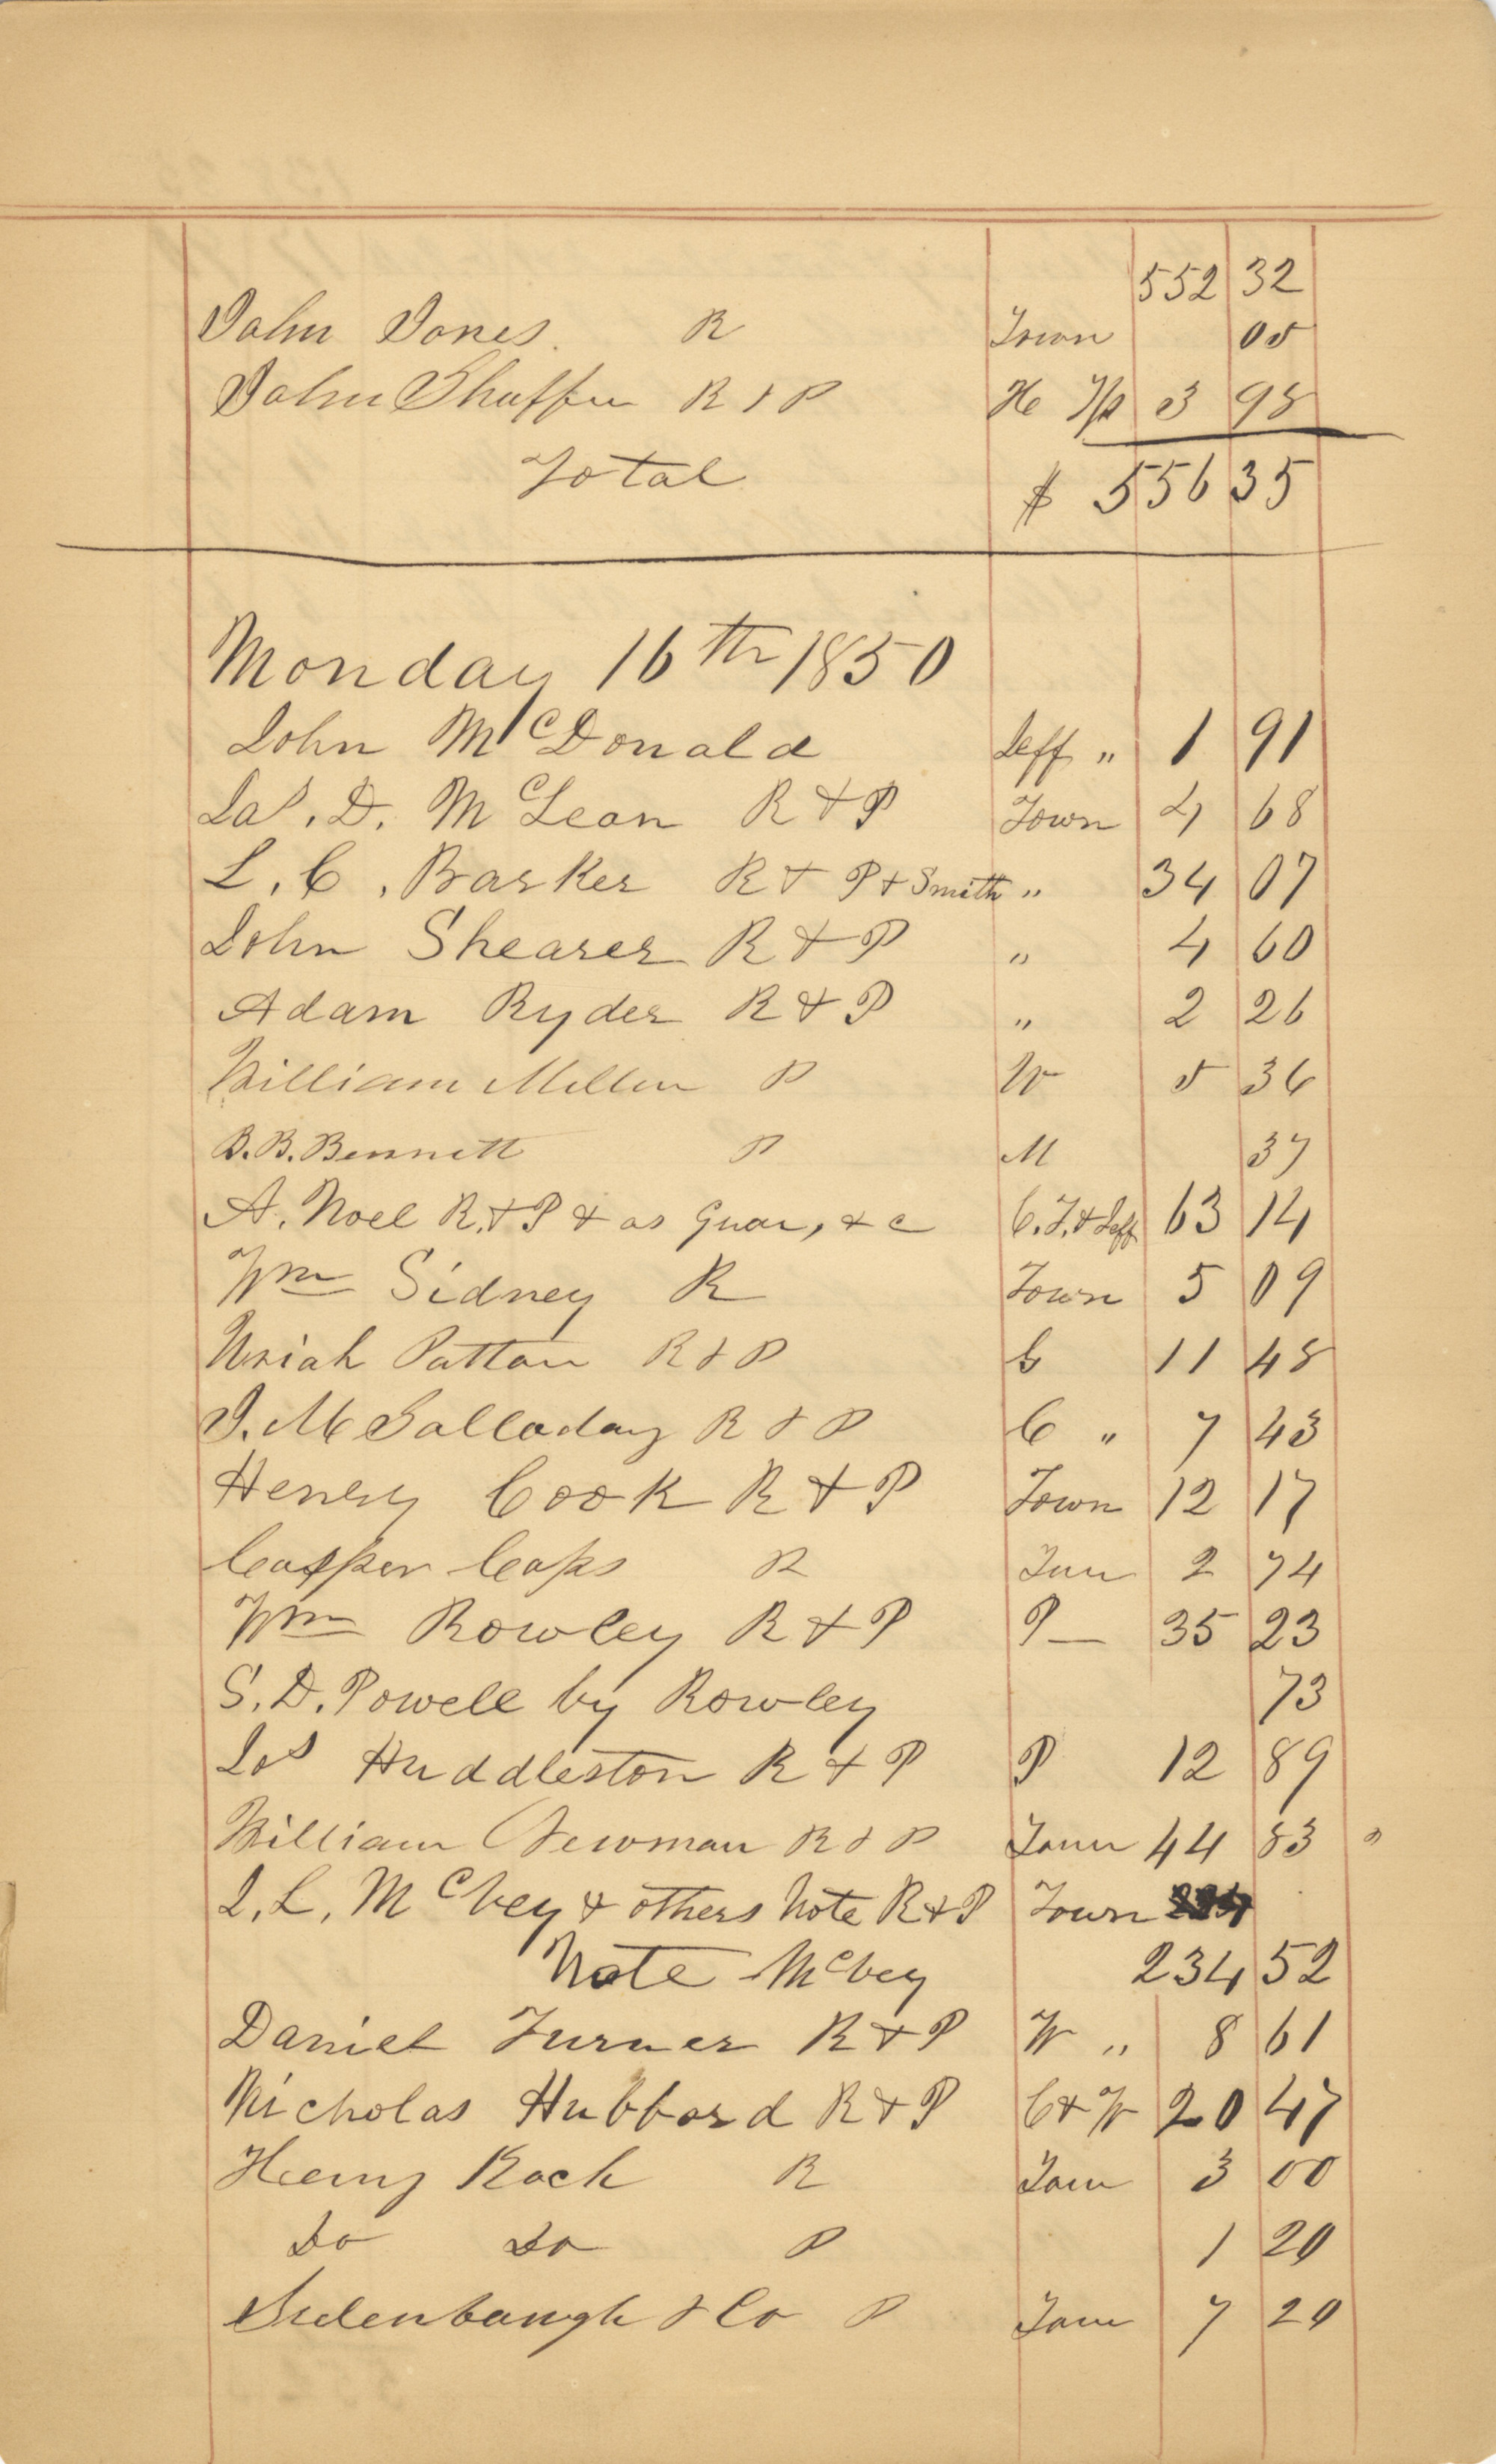 552 32
John Jones. R Town 05
John Shaffer R & P H Tp 3 98
Total $ 556 35
Monday 16th 1850
John McDonald Jeff " 1 91
Jas. D. McLean R & P Town 4 68
L. C. Barker R & P & Smith " 34 07
John Shearer R & P " 4 60
Adam Ryder R & P " 2 26
William Miller P W 5 36
B. B. Bennett P M 37
A. Noel R. & P & as Guar, & c C. T. & Jeff 63 14
Wm Sidney R Town 5 09
Uriah Patton R & P G 11 48
J. M Salladay R & P C " 7 43
Henry Cook R & P Town 12 17
Casper Caps R Tow 2 74
Wm Rowley R & P P — 35 23
S. D. Powell by Rowley 73
Jos Huddleston R & P P 12 89
William Newman R & P Town 44 83 "
J. L. McVey & others Note R & P Town
Note McVey 234 52
Daniel Turner R & P W " 8 61
Nicholas Hubbard R & P C & W 20 47
Henry Rock R Town 3 00
Do Do P 1 20
Sidenbaugh & Co P Town 7 20